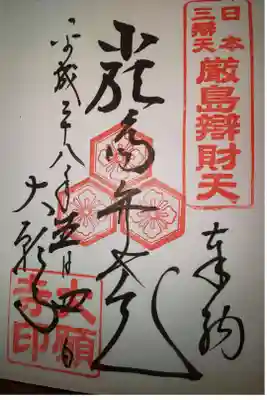 日本
三辯天
厳島辯財天
奉納
厳島弁才天
平成二十八年五月四日
大願寺
大願
寺印